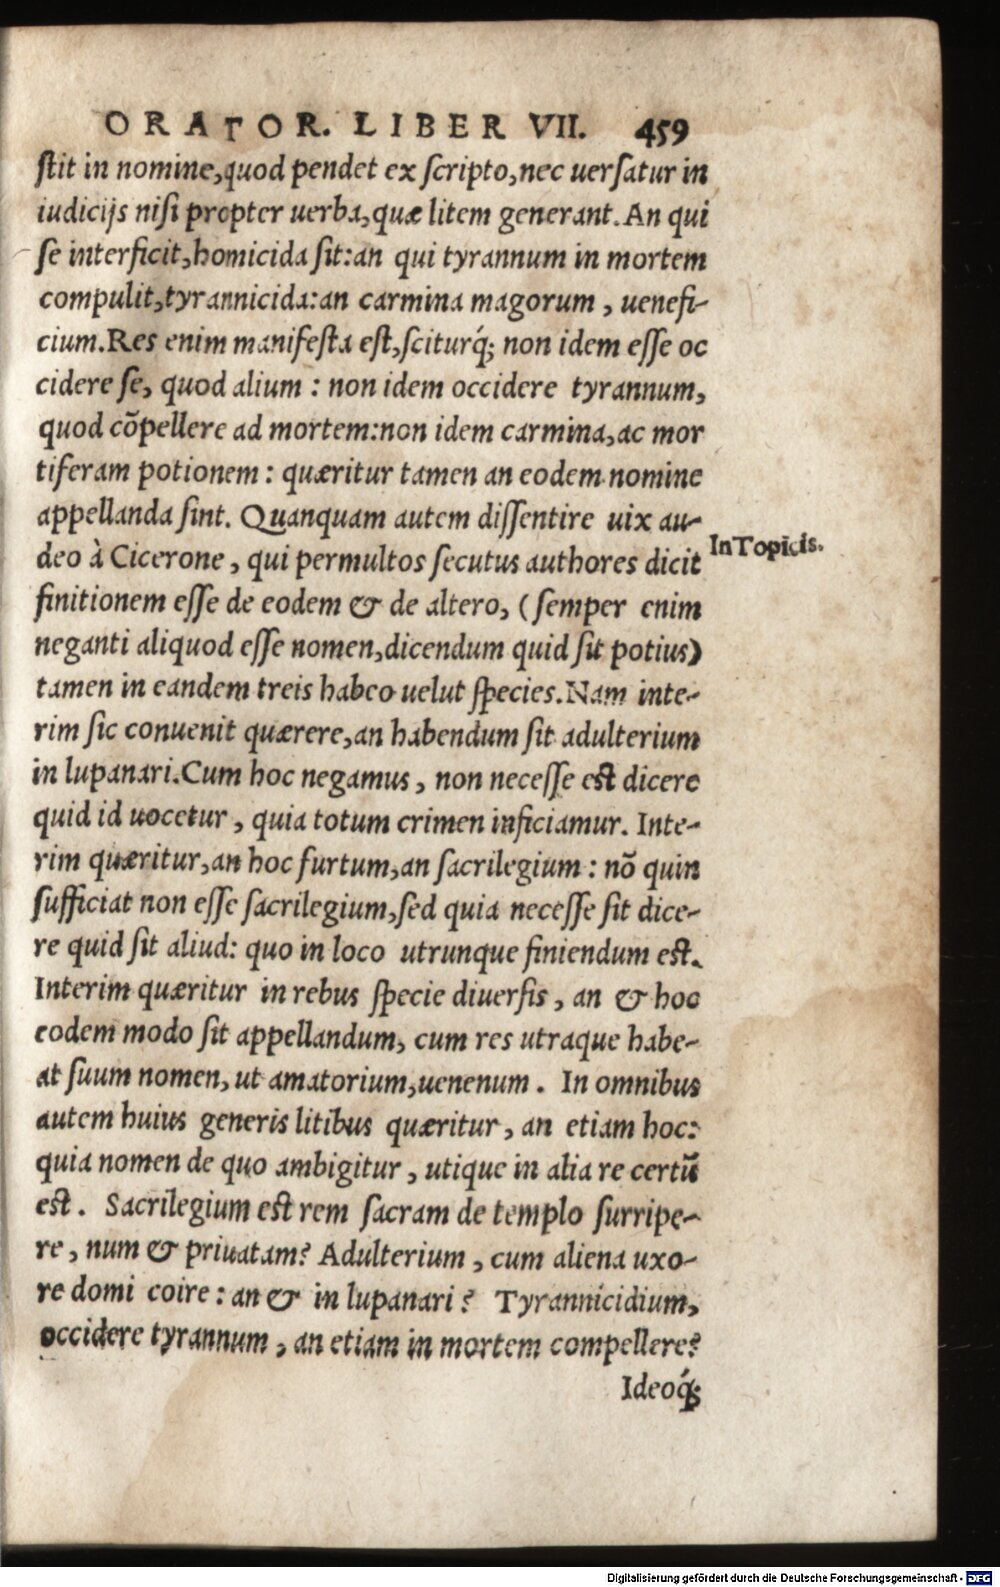 ORATOR. LIBER VII. 459
ſtit in nomine,quod pendet ex ſcripto,nec uerſatur in
iudicijs niſi propter uerba,quæ litem generant. An qui
ſe interficit,homicida ſit:an qui tyrannum in mortem
compulit,tyrannicida:an carmina magorum , uenefi-
cium.Res enim manifeſta eſt,ſciturq́; non idem eſſe oc
cidere ſe, quod alium : non idem occidere tyrannum,
quod cõpellere ad mortem:non idem carmina,ac mor
tiferam potionem : quæritur tamen an eodem nomine
appellanda ſint. Quanquam autem diſſentire uix au-
deo à Cicerone , qui permultos ſecutus authores dicit
InTopicis.
finitionem eſſe de eodem & de altero, (ſemper enim
neganti aliquod eſſe nomen,dicendum quid ſit potius)
tamen in eandem treis habeo uelut ſpecies.Nam inte-
rim ſic conuenit quærere,an habendum ſit adulterium
in lupanari.Cum hoc negamus , non neceſſe eſt dicere
quid id uocetur , quia totum crimen inficiamur. Inte-
rim quæritur,an hoc furtum,an ſacrilegium : nõ quin
ſufficiat non eſſe ſacrilegium,ſed quia neceſſe ſit dice-
re quid ſit aliud: quo in loco utrunque finiendum eſt.
Interim quæritur in rebus ſpecie diuerſis , an & hoc
eodem modo ſit appellandum, cum res utraque habe-
at ſuum nomen, ut amatorium,uenenum . In omnibus
autem huius generis litibus quæritur , an etiam hoc:
quia nomen de quo ambigitur , utique in alia re certũ
eſt . Sacrilegium eſt rem ſacram de templo ſurripe-
re , num & priuatam? Adulterium , cum aliena uxo-
re domi coire : an & in lupanari ? Tyrannicidium,
occidere tyrannum , an etiam in mortem compellere?
Ideoq́;
Digitalisierung gefördert durch die Deutsche Forschungsgemeinschaft - DFG